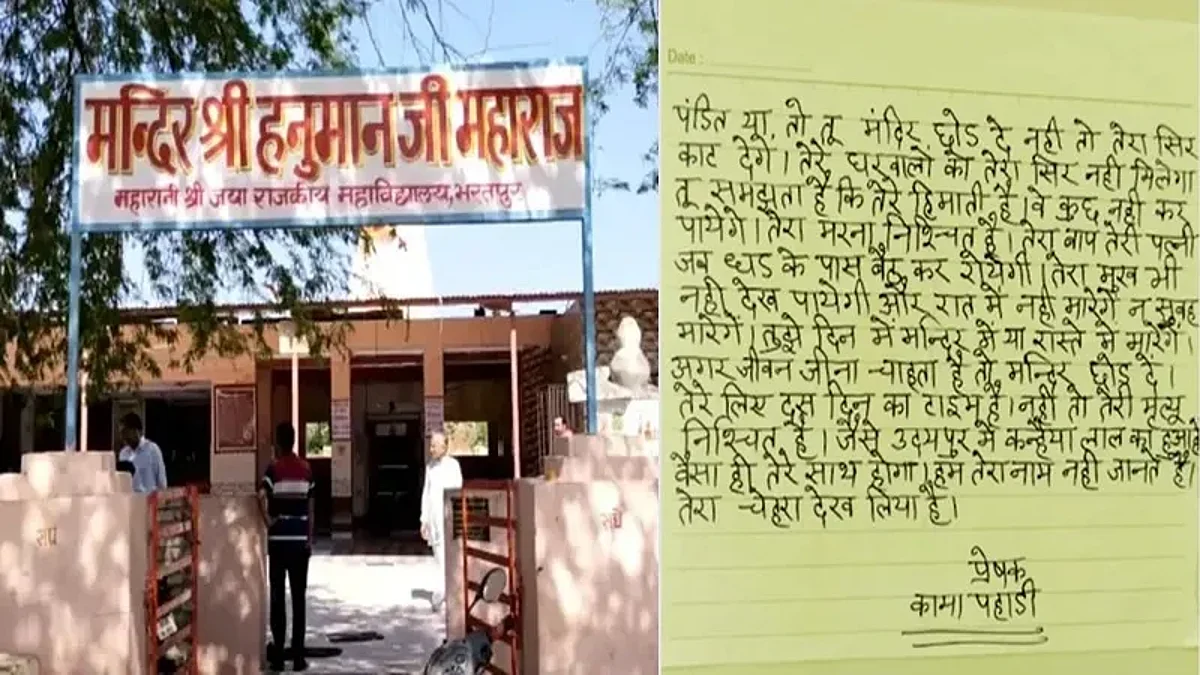 मन्दिर श्री हनुमान जी महाराज
महारानी श्री जया राजकीय महाविद्यालय, भरतपुर
Date :
पंडित या तो तू मंदिर छोड दे नही तो तेरा सिर
काट देगे। तेरे घरवालो को तेरा सिर नही मिलेगा
तू समझता है कि तेरे हिमाती है। वे कुछ नही कर
पायेगे। तेरा मरना निश्चित है। तेरा बाप तेरी पत्नी
जब धड के पास बैठ कर रोयेगी। तेरा मुख भी
नही देख पायेगी और रात मे नही मारेगे न सुबह
मारेगे। तुझे दिन मे मन्दिर मे या रास्ते मे मारेगे।
अगर जीवन जीना चाहता है तो मन्दिर छोड दे।
तेरे लिए दस दिन का टाइम है। नही तो तेरी मृत्यू
निश्चित है। जैसे उदयपुर मे कन्हैया लाल का हुआ है
वैसा ही तेरे साथ होगा। हम तेरा नाम नही जानते है।
तेरा चेहरा देख लिया है।
प्रेषक
कामा पहाडी